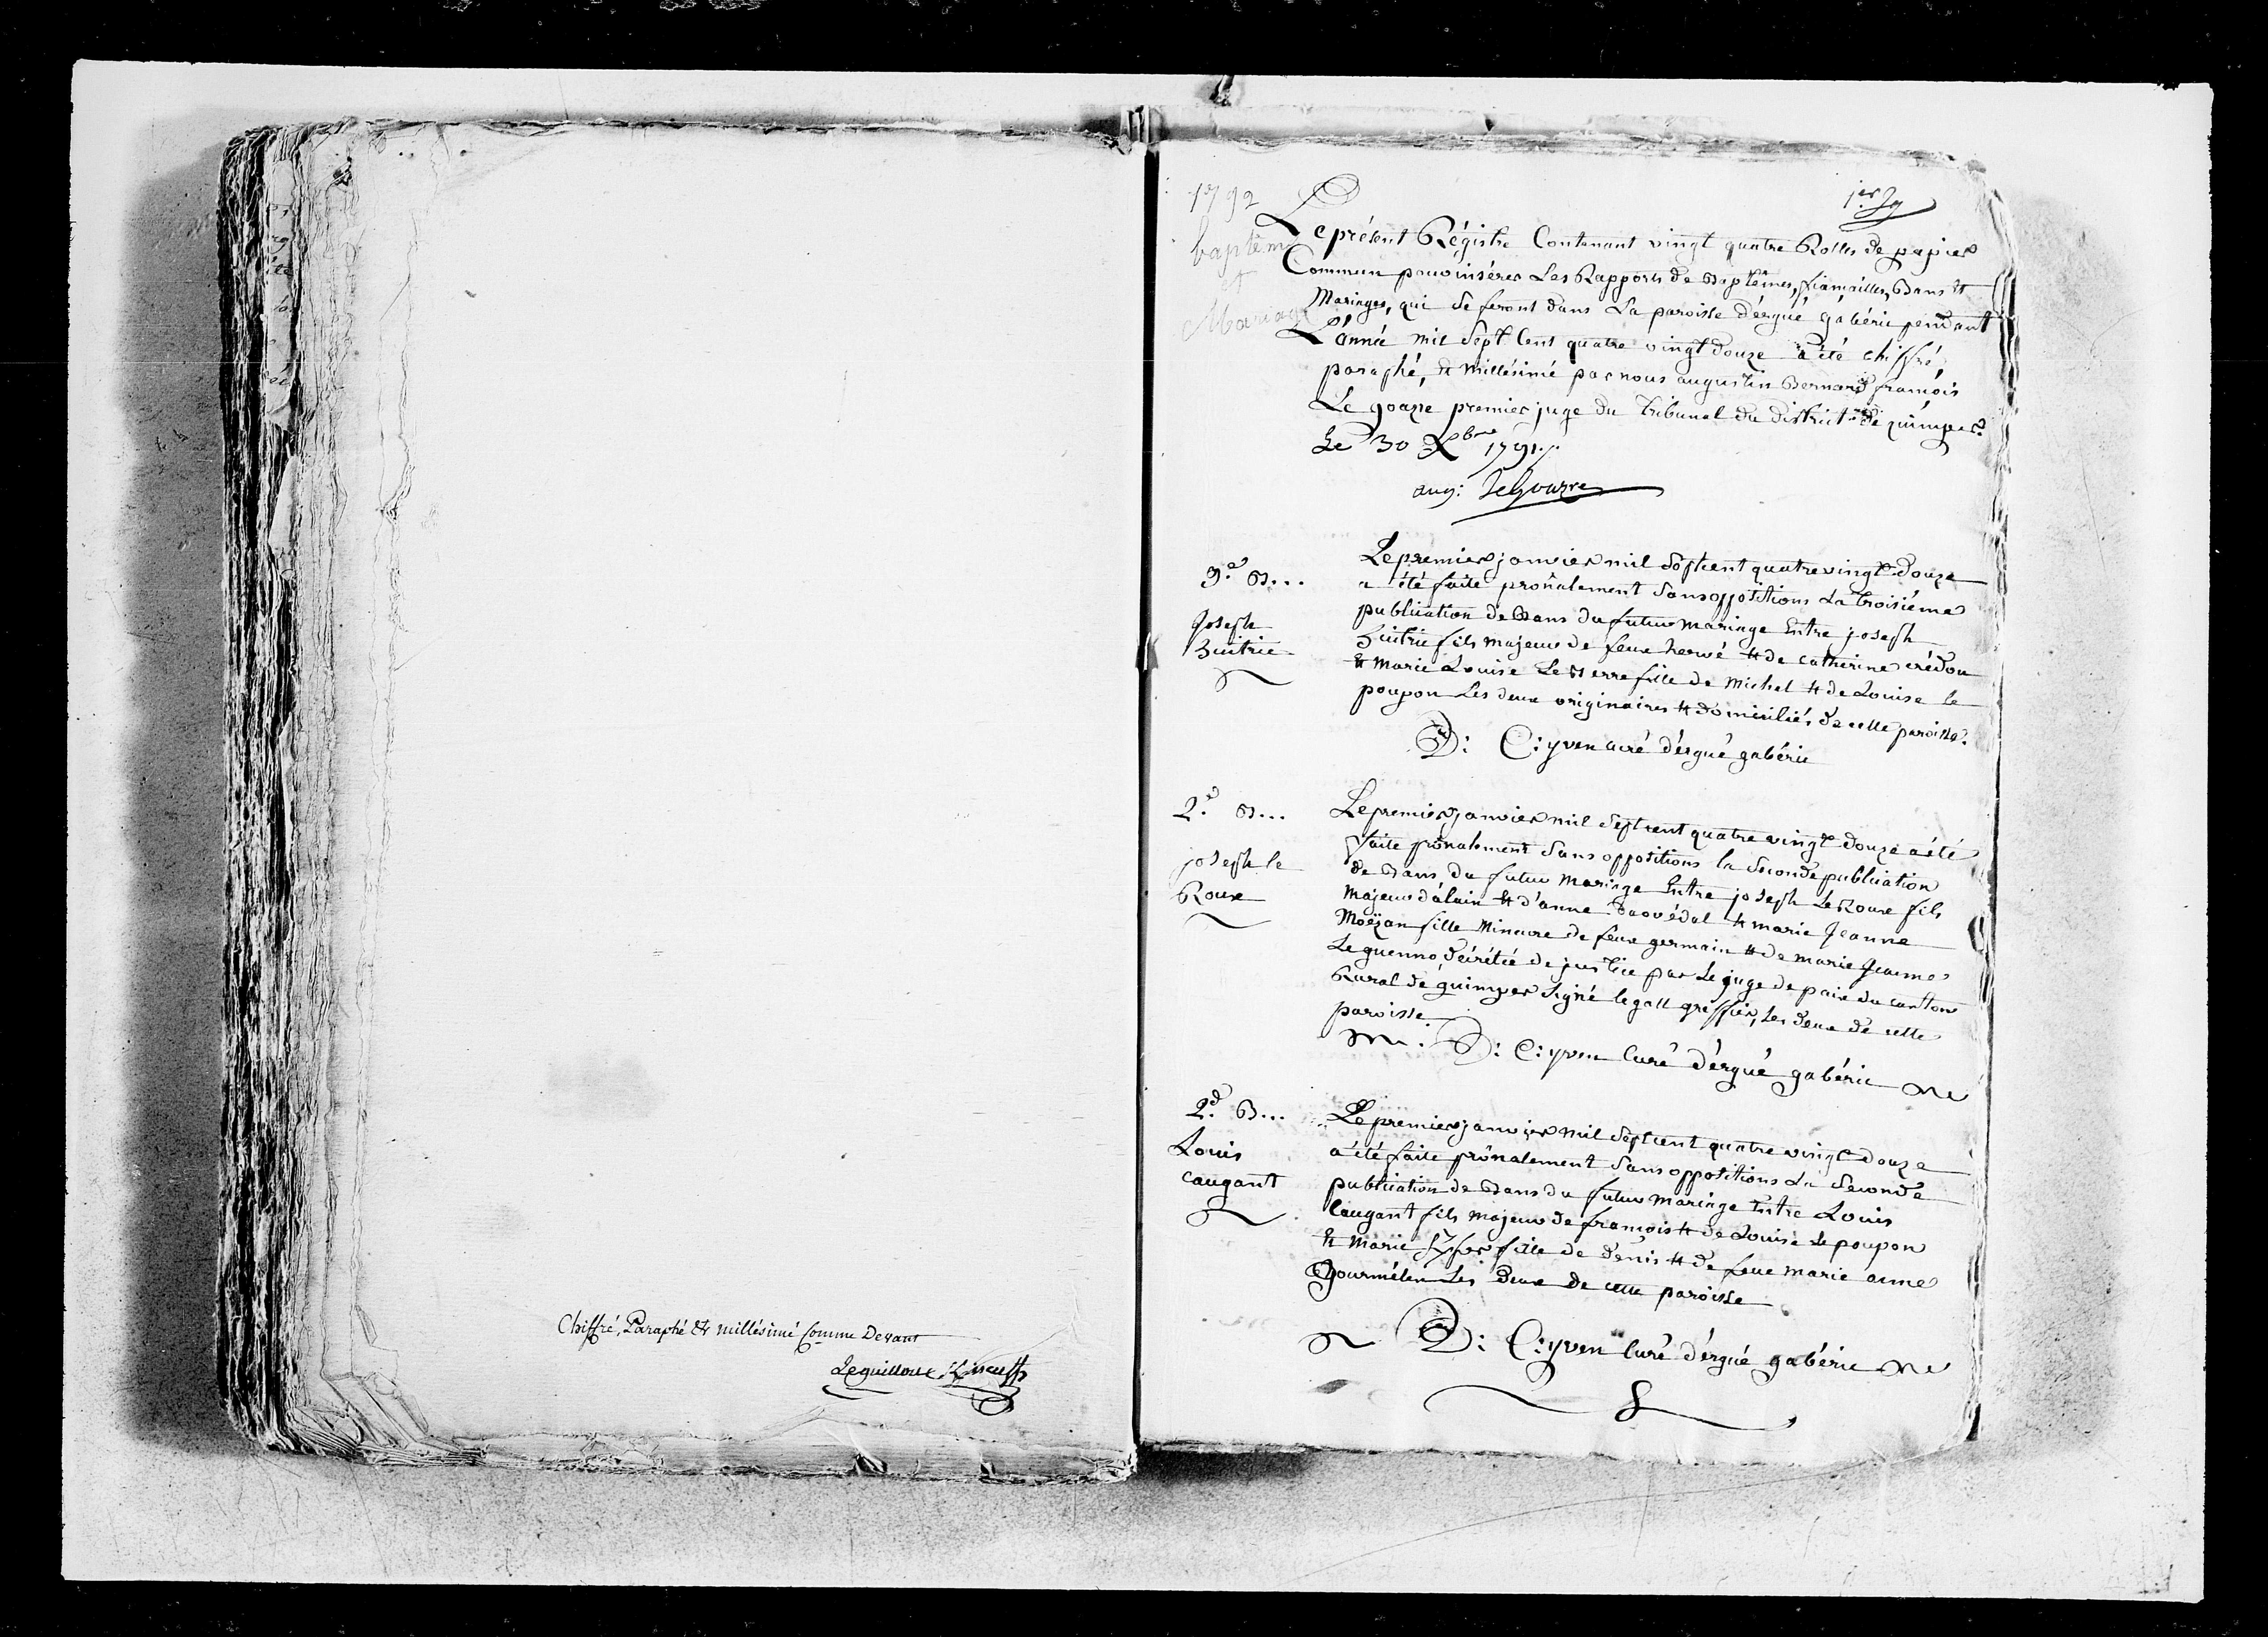 Chiffré, Paraphé & millésimé Comme Devant
Leguillou
1792
baptêm
et
Mariage
1er
Le présent Régistre Contenant vingt quatre Rolles de papier
Commun pour insérer Les Rapports de Baptêmes, fiancailles, Bans et
Mariages, qui se feront dans La paroisse d'ergué gabéric pendant
L'année mil sept Cent quatre vingt douze a été chiffré,
paraphé, et Millésimé par nous augustin Bernard francois
Le goazre premier juge du Tribunal du district de quimper.
Le 30 Xbre 1791./.
aug: LeGoazre
3.e B...
Joseph
Le premier janvier mil Septcent quatrevingt douze
a été faite prônalement Sans oppositions La troisième
publication de Bans du futur mariage Entre joseph
fils majeur de feux hervé et de Catherine crédou
et Marie Louise Le Berre fille de Michel et de Louise le
poupon Les deux originaires et domiciliés de cette paroisse.
D: C: yven curé d'ergué gabéric
2.d B...
joseph le
Roux
Le premier janvier mil Septcent quatre vingt douze a été
faite prônalement Sans oppositions la Seconde publication
de Bans du futur mariage Entre joseph Le Roux fils
Majeur d'alain et d'anne Daovédal et marie Jeanne
Moëzan fille Mineure de feux germain et de marie Jeanne
Le guenno, décrétée de justice par Le juge de paix du canton
Rural de quimper Signé legall greffier, Les deux de cette
paroisse.
D: C: yven Curé d'ergué gabéric
2.d B...
Louis
caugant
Le premier janvier mil Septcent quatre vingt douze
a été faite prônalement Sans oppositions La Seconde
publication de Bans du futur mariage Entre Louis
Caugant fils majeur de francois et de Louise Le poupon
et Marie fille de denis et de feue marie anne
gourmélen Les Deux de cette paroisse
D: C: yven Curé d'ergué gabéric